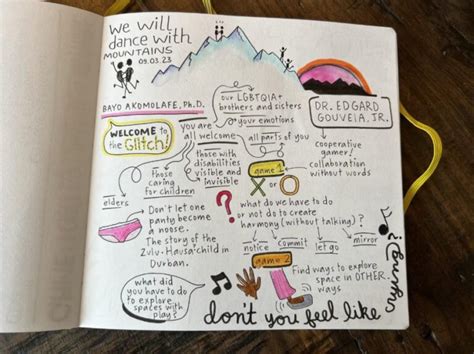 we will
dance with
MOUNTAINS
09.03.23
BAYO AKOMOLAFE, Ph.D.
WELCOME to
the GLitch!
you are
all welcome
our LGBTQIA+
brothers and sisters
your emotions
all parts of you
those with
disabilities
visible and
invisible
those
caring for
children
elders
DR. EDGARD
GOUVEIA, JR.
cooperative
gamer!
collaboration
without words
game 1
X or O
? what do we have to do
or not do to create
harmony (without talking)?
notice commit let go mirror
game 2
find ways to explore
space in OTHER
ways
Don't let one
panty become
a noose.
The story of the
Zulu-Hausa child in
Durban.
what did
you have to do
to explore
spaces with
play?
don't you feel like crying?